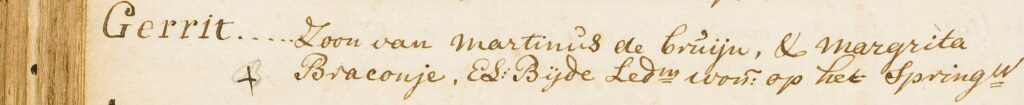 Gerrit..... Zoon van Martinus de bruijn, & Margrita
+ Braconje, EL: Bijde Ledm won: op het Spring W